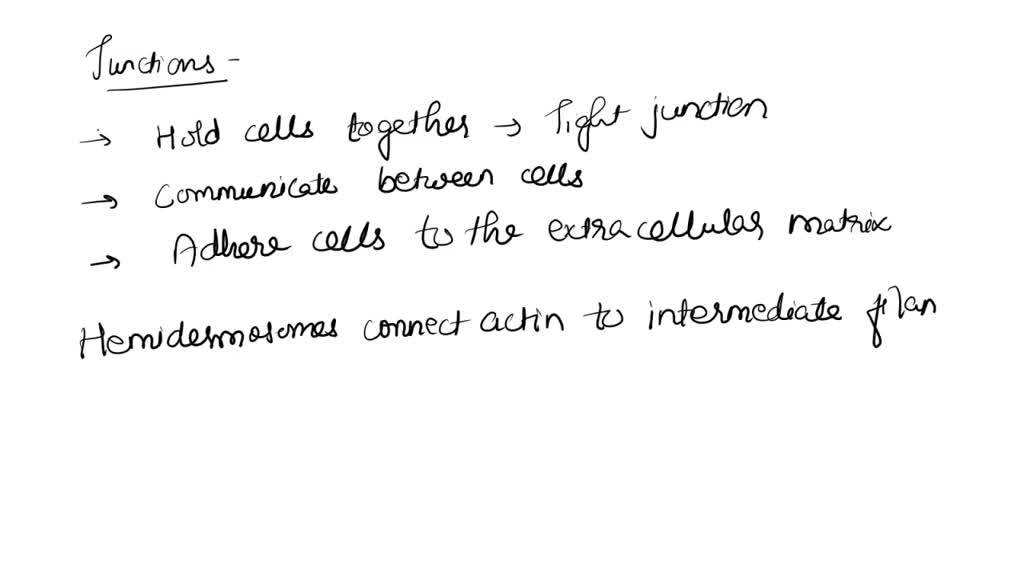 Junctions -
→ Hold cells together → Tight junction
→ Communicate between cells
→ Adhere cells to the extracellular matrix
Hemidesmosomes connect actin to intermediate